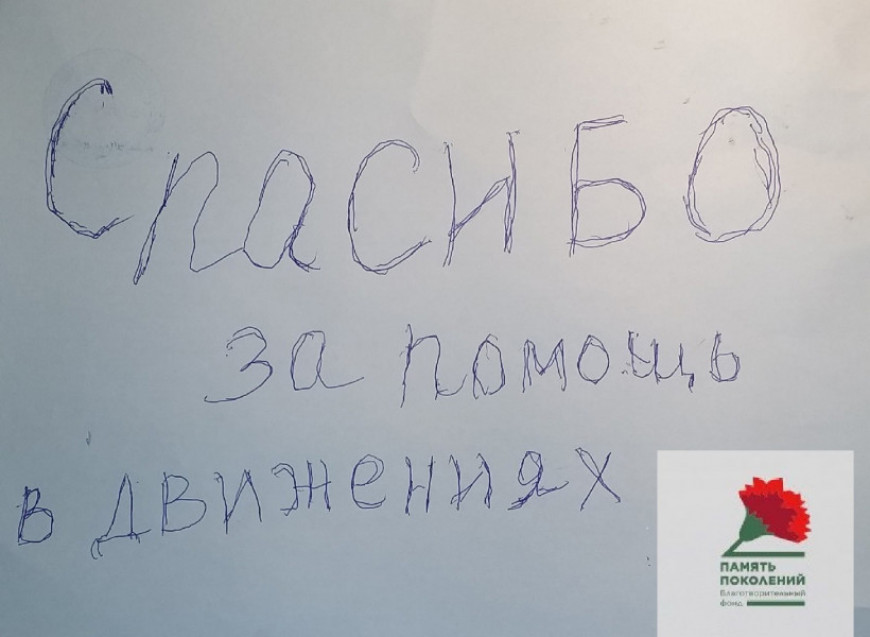 Спасибо
за помощь
в движениях
ПАМЯТЬ
ПОКОЛЕНИЙ
Благотворительный
фонд